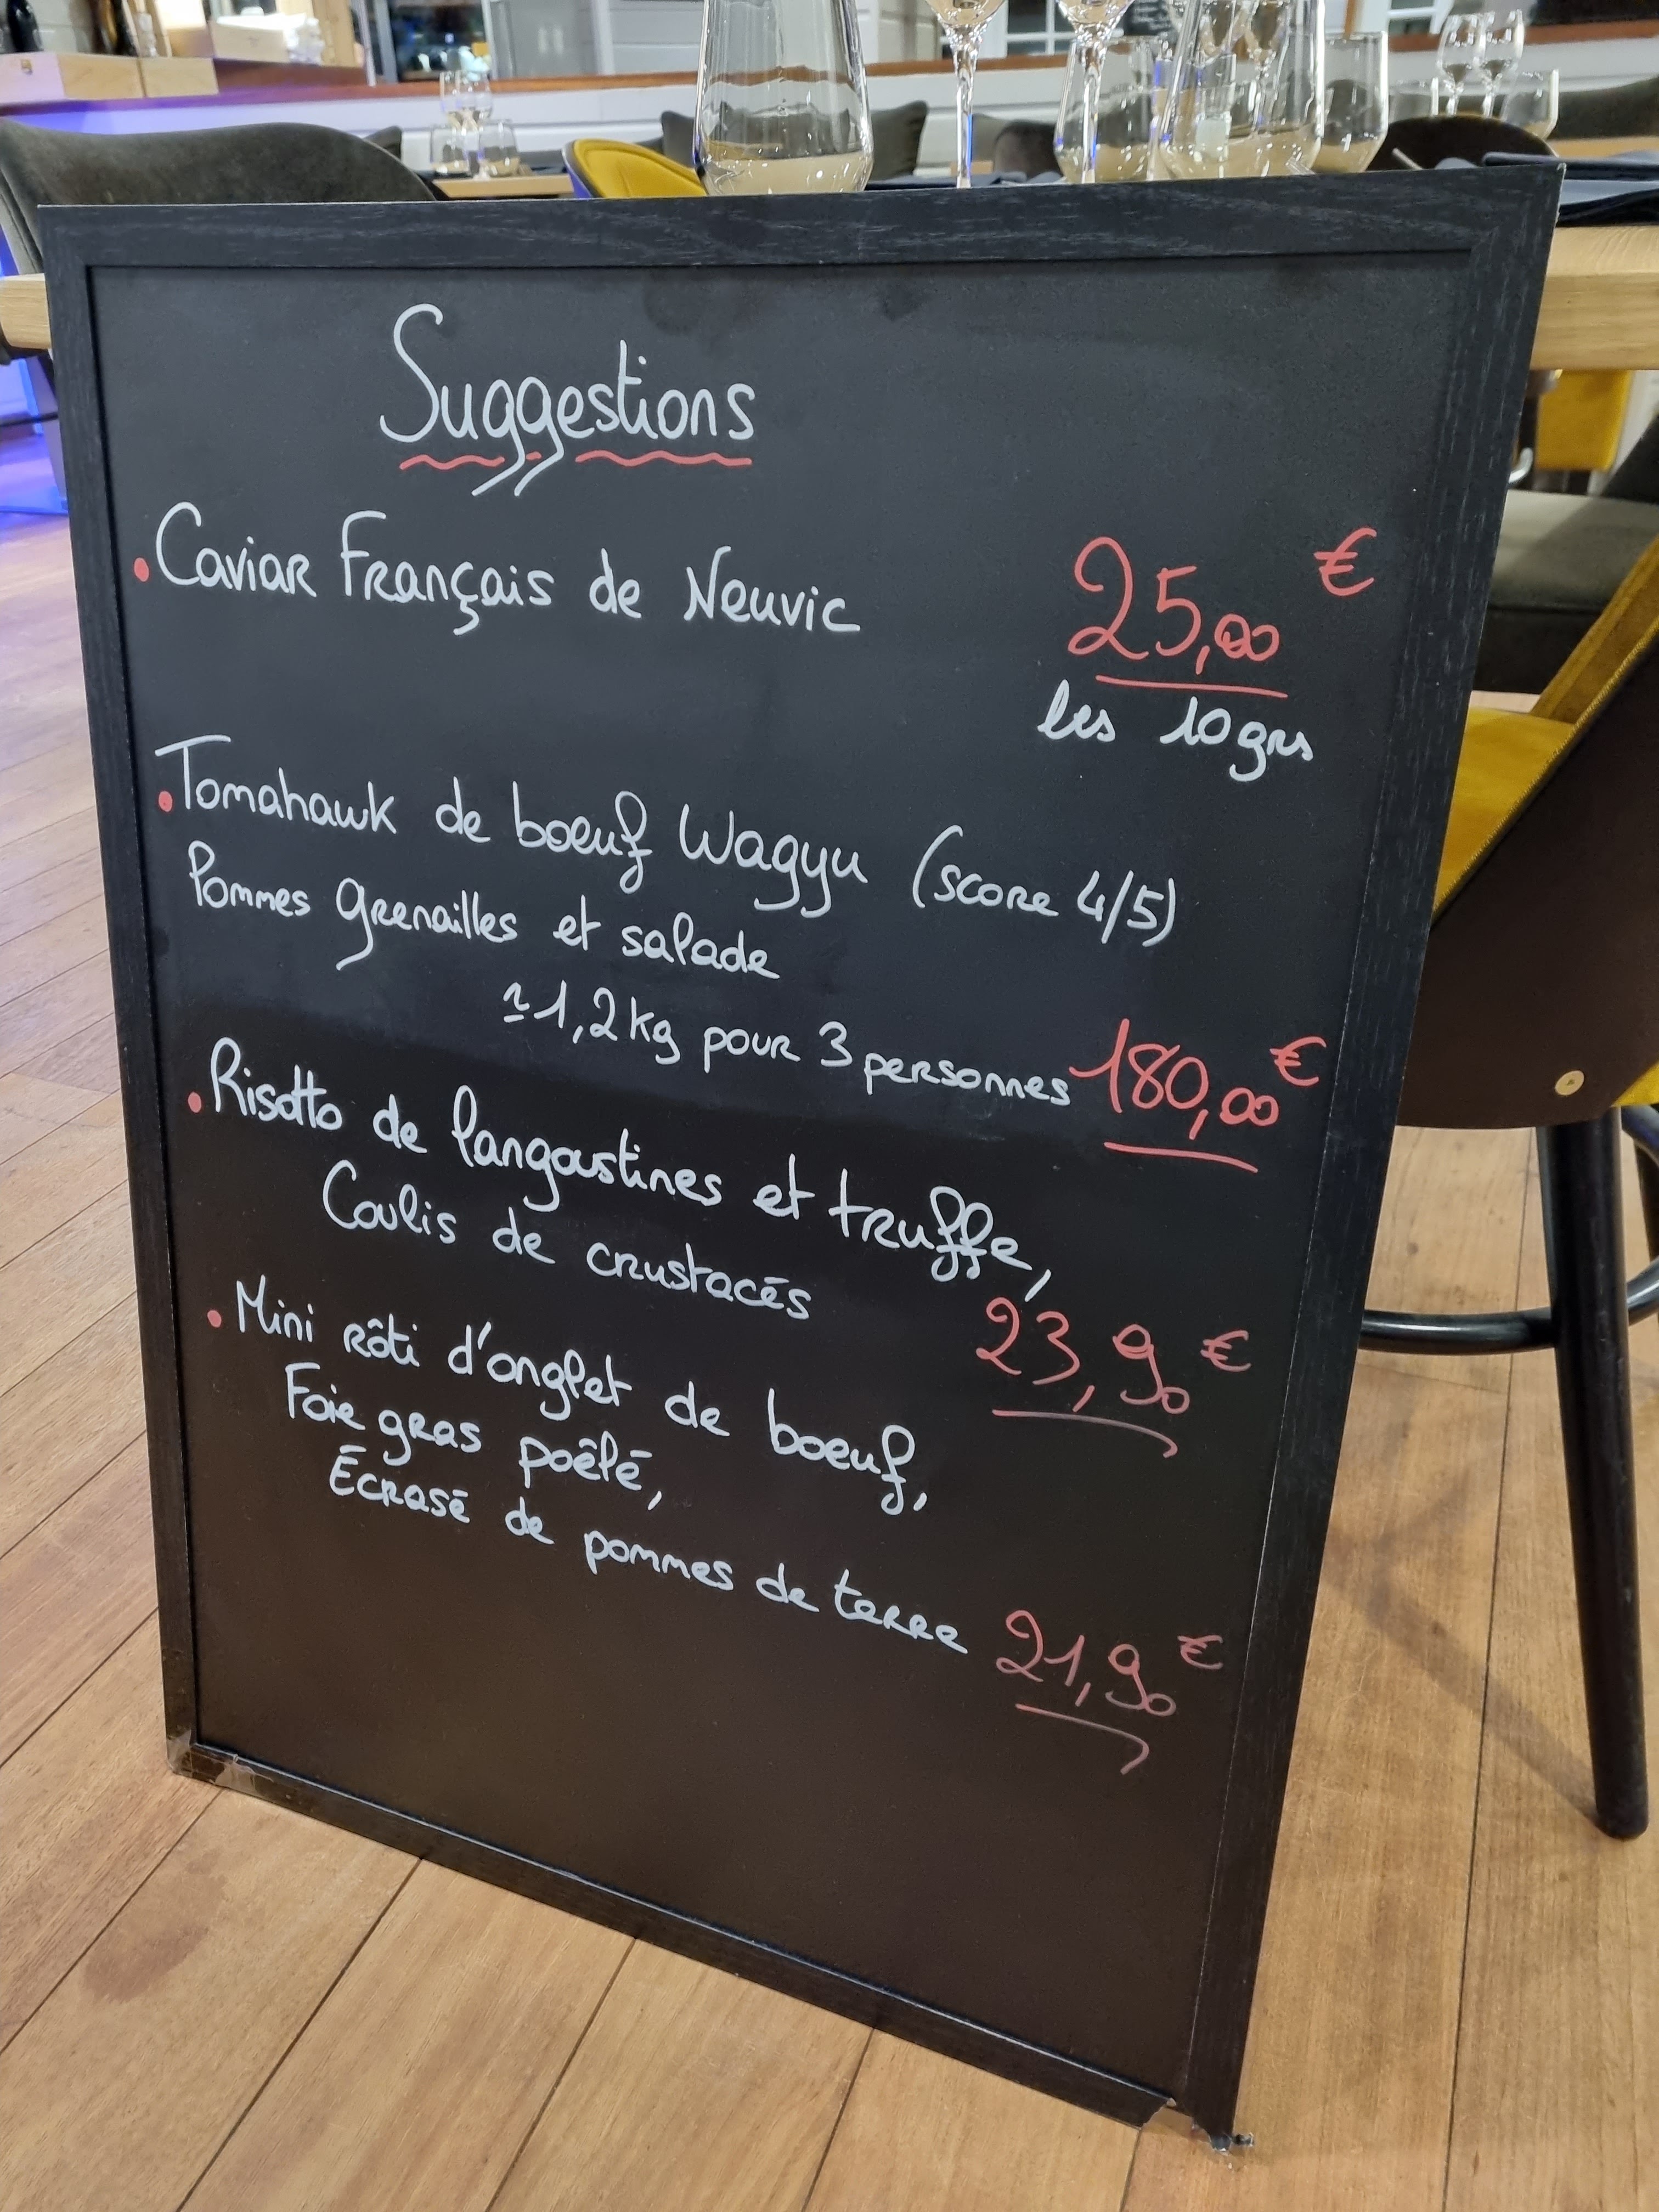 Suggestions
• Caviar Français de Neuvic 25,00 €
les 10grs
• Tomahawk de boeuf Wagyu (score 4/5)
Pommes grenailles et salade
≃1,2kg pour 3 personnes 180,00 €
• Risotto de langoustines et truffe,
Coulis de crustacés 23,90 €
• Mini rôti d'onglet de boeuf,
Foie gras poêlé,
Écrasé de pommes de terre 21,90 €